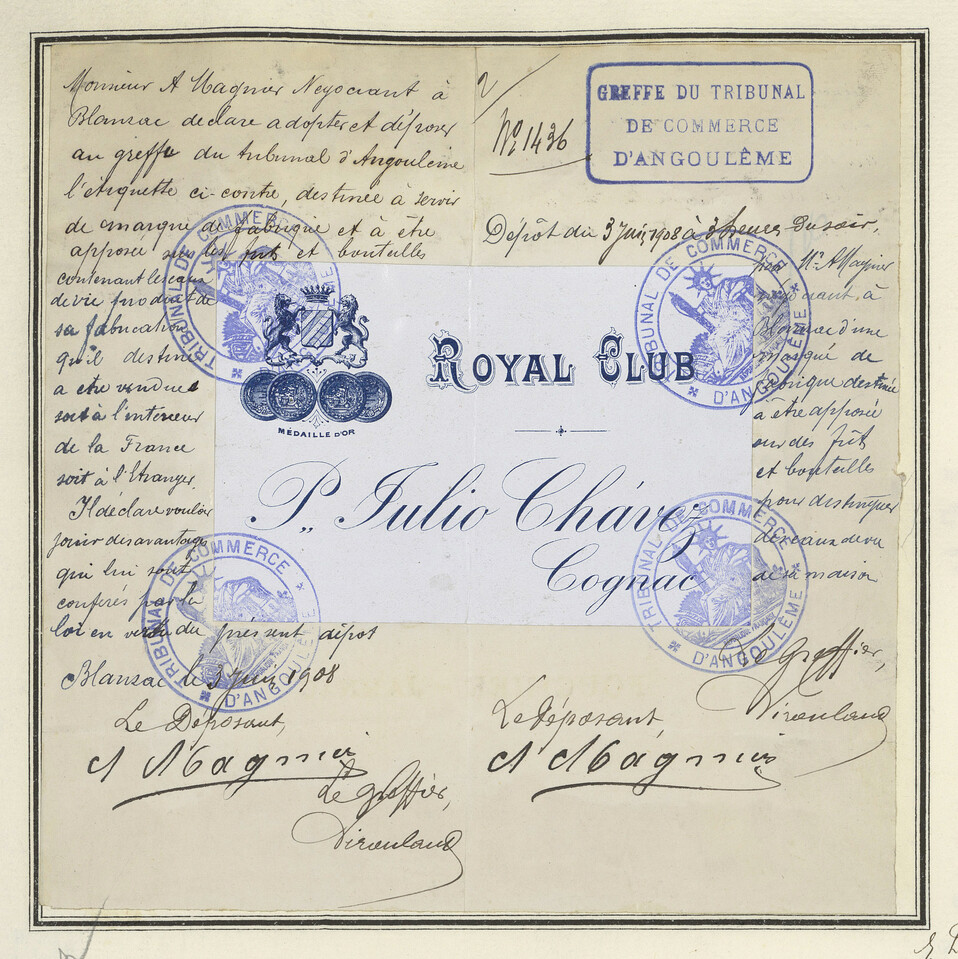 Monsieur A Magnier Negociant à
Blanzac declare adopter et déposer
au greffe du tribunal d'Angoulême
l'étiquette ci-contre, destinée à servir
de marque de fabrique et à être
apposée sur les fûts et bouteilles
contenant les eaux
de vie produit de
sa fabrication
qu'il destine
a etre vendues
soit à l'interieur
de la France
soit à l'Etranger.
Il déclare vouloir
jouir des avantages
qui lui sont
conférés par la
loi en vertu du présent dépot
Blanzac le 3 Juin 1908
Le Déposant,
A Magnier
Le Greffier,
2/
No 1436
GREFFE DU TRIBUNAL
DE COMMERCE
D'ANGOULÊME
Dépôt du 3 Juin 1908 à 3 heures du soir,
par Mr A Magnier
négociant, à
Blanzac d'une
marque de
fabrique destinée
à être apposée
sur des fûts
et bouteilles
pour distinguer
les eaux de vie
de sa maison
Le Greffier,
Le Déposant
A Magnier
ROYAL CLUB
MÉDAILLE D'OR
P,, Julio Chávez
Cognac
TRIBUNAL DE COMMERCE D'ANGOULÊME
TRIBUNAL DE COMMERCE D'ANGOULÊME
TRIBUNAL DE COMMERCE D'ANGOULÊME
TRIBUNAL DE COMMERCE D'ANGOULÊME